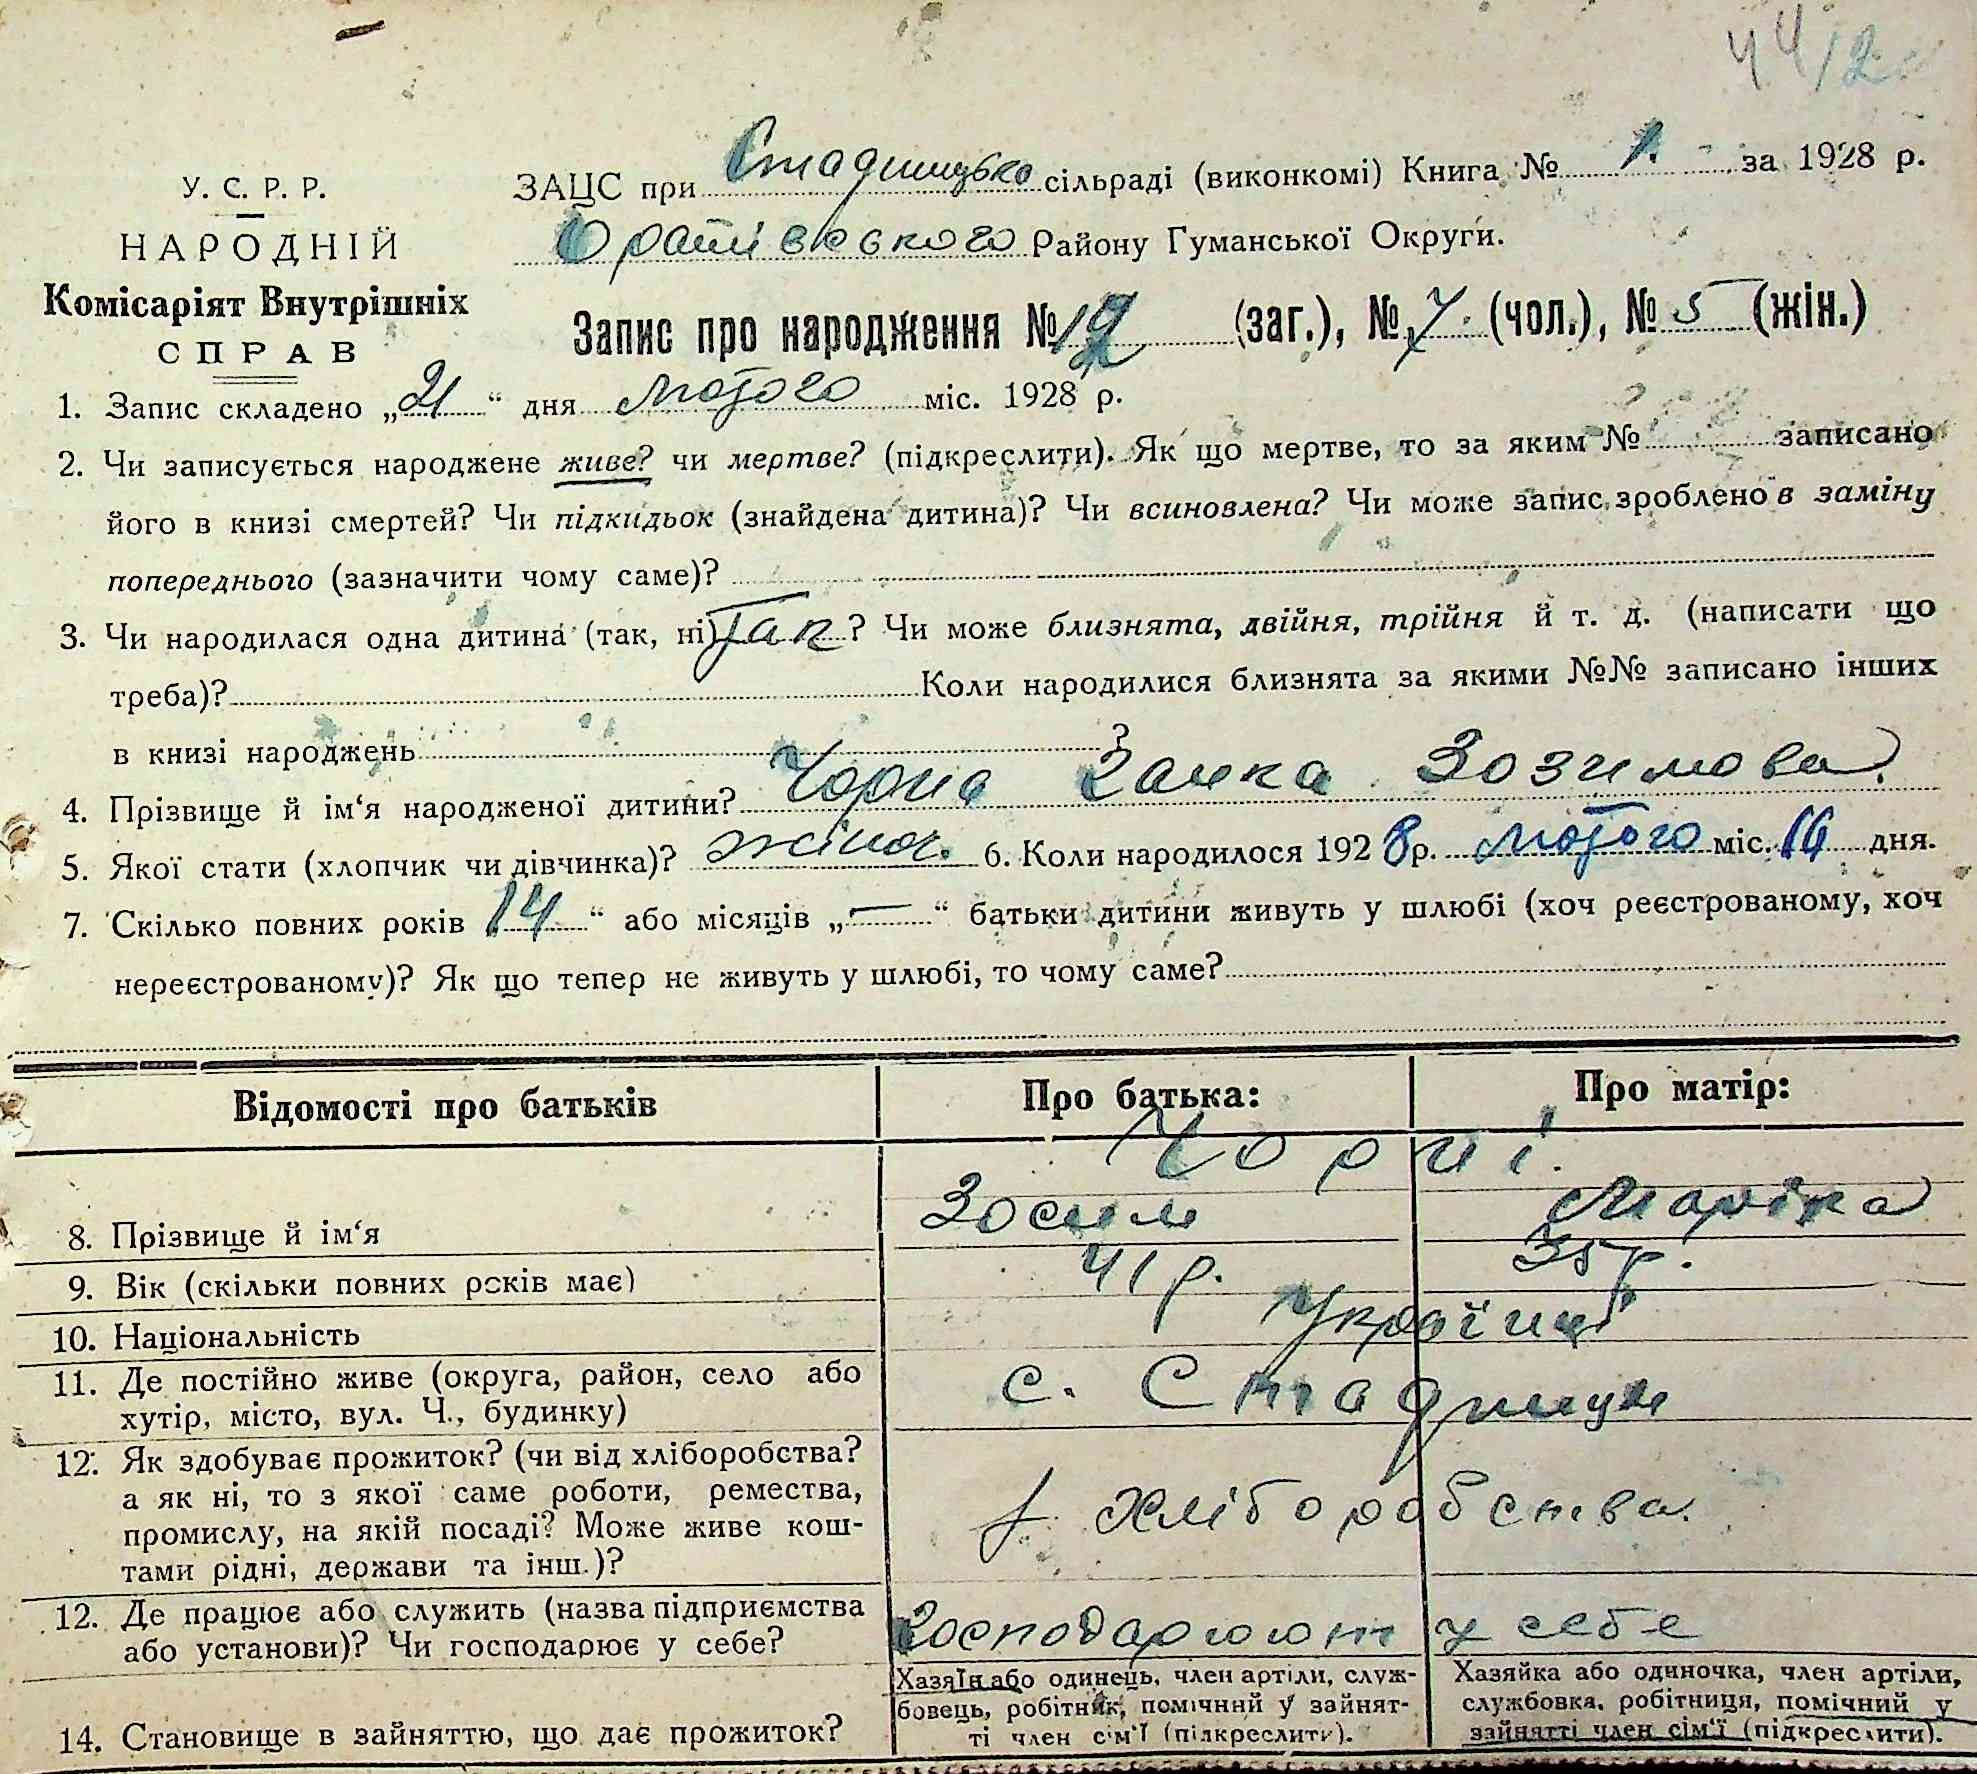 44/12
У. С. Р. Р.
НАРОДНІЙ
Комісаріят Внутрішніх
СПРАВ
ЗАЦС при Стадницько сільраді (виконкомі) Книга № 1. за 1928 р.
Оратівського Району Гуманської Округи.
Запис про народження № 12 (заг.), № 7. (чол.), № 5 (жін.)
1. Запис складено „21“ дня лютого міс. 1928 р.
2. Чи записується народжене живе? чи мертве? (підкреслити). Як що мертве, то за яким № записано
його в книзі смертей? Чи підкидьок (знайдена дитина)? Чи всиновлена? Чи може запис зроблено в заміну
попереднього (зазначити чому саме)?
3. Чи народилася одна дитина (так, ні) Так ? Чи може близнята, двійня, трійня й т. д. (написати що
треба)? Коли народилися близнята за якими №№ записано інших
в книзі народжень ?
4. Прізвище й ім‘я народженої дитини? Чорна Ганка Зозимова.
5. Якої стати (хлопчик чи дівчинка)? жіноч. 6. Коли народилося 1928 р. лютого міс. 16 дня.
7. Скілько повних років 14 “ або місяців „—“ батьки дитини живуть у шлюбі (хоч реєстрованому, хоч
нереєстрованому)? Як що тепер не живуть у шлюбі, то чому саме?
Відомості про батьків Про батька: Про матір:
Чорні.
8. Прізвище й ім‘я Зосим Маріка
9. Вік (скільки повних років має) 41 р. 35 р.
10. Національність Українці
11. Де постійно живе (округа, район, село або
хутір, місто, вул. Ч., будинку) с. Стадниця
12. Як здобуває прожиток? (чи від хліборобства?
а як ні, то з якої саме роботи, ремества,
промислу, на якій посаді? Може живе кош-
тами рідні, держави та інш.)? з Хліборобства.
12. Де працює або служить (назва підприємства
або установи)? Чи господарює у себе? Господарюют у себе
14. Становище в зайняттю, що дає прожиток?
Хазяїн або одинець, член артіли, служ-
бовець, робітник, помічний у зайнят-
ті член сім‘ї (підкреслити).
Хазяйка або одиночка, член артіли,
службовка, робітниця, помічний у
зайнятті член сім‘ї (підкреслити).